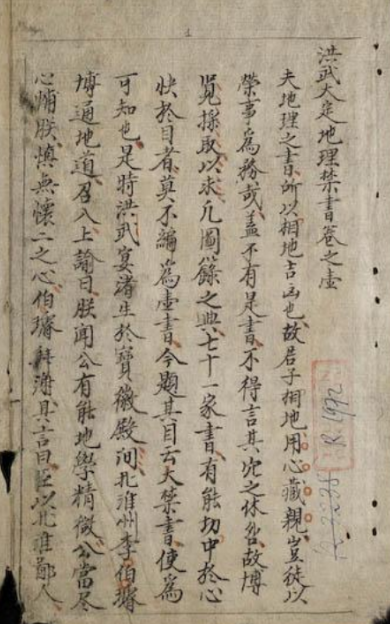 洪武大定地理禁書卷之壹
夫地理之書所以相地吉凶也故君子相地用心藏親豈徒以
榮事為務哉蓋不有是書不得言其穴之休咎故博
覽採取以求凡圖籙之典七十一家書有能切中於心
快於目者莫不編為壹書今題其目云大禁書使為
可知也是時洪武宴諸生於寶徽殿詢北淮州李伯
博通地道召入上諭曰朕聞公有能地學精微公當尽
心輔朕慎無懷二之心伯 拜謝具言曰臣以北淮鄭人
R. 1992